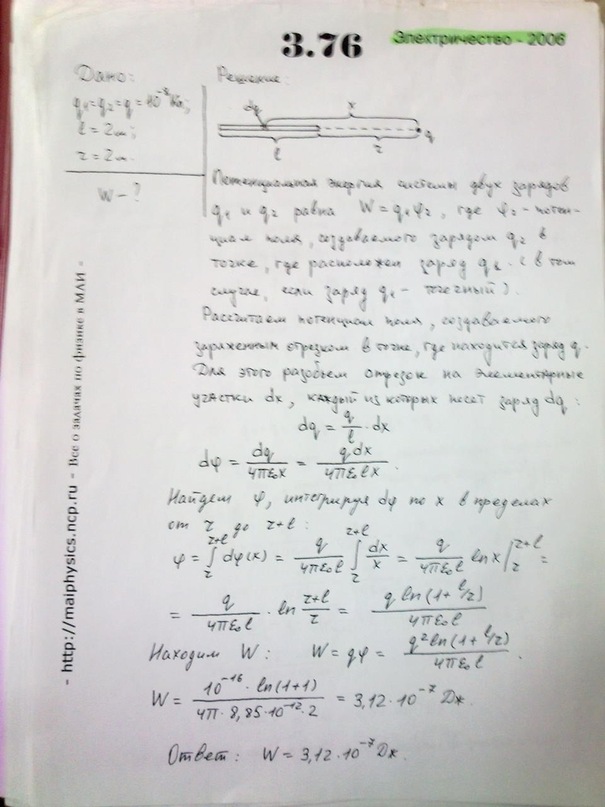 3.76
Электричество - 2006
Дано:
q₁=q₂=q=10⁻⁸Кл;
l = 2м;
r = 2м.
W - ?
Решение:
dq x
q
l r
Потенциальная энергия системы двух зарядов
q₁ и q₂ равна W = q₁φ₂, где φ₂ - потен-
циал поля, создаваемого зарядом q₂ в
точке, где расположен заряд (в том
случае, если заряд q₁ - точечный).
Рассчитаем потенциал поля, создаваемого
заряженным отрезком в точке, где находится заряд q.
Для этого разобьем отрезок на элементарные
участки dx, каждый из которых несет заряд dq:
dq = q/l · dx
dφ = dq/4πε₀x = qdx/4πε₀lx.
Найдем φ, интегрируя dφ по x в пределах
от r до r+l:
φ = ∫ᵣʳ⁺ˡ dφ(x) = q/4πε₀l ∫ᵣʳ⁺ˡ dx/x = q/4πε₀l ln x |ᵣʳ⁺ˡ =
= q/4πε₀l · ln r+l/r = q ln(1+l/r)/4πε₀l
Находим W: W = qφ = q² ln(1+l/r)/4πε₀l.
W = 10⁻¹⁶ · ln(1+1)/4π · 8,85·10⁻¹²·2 = 3,12·10⁻⁷ Дж.
Ответ: W = 3,12·10⁻⁷ Дж.
- http://maiphysics.ncp.ru - Все о задачах по физике в МАИ -